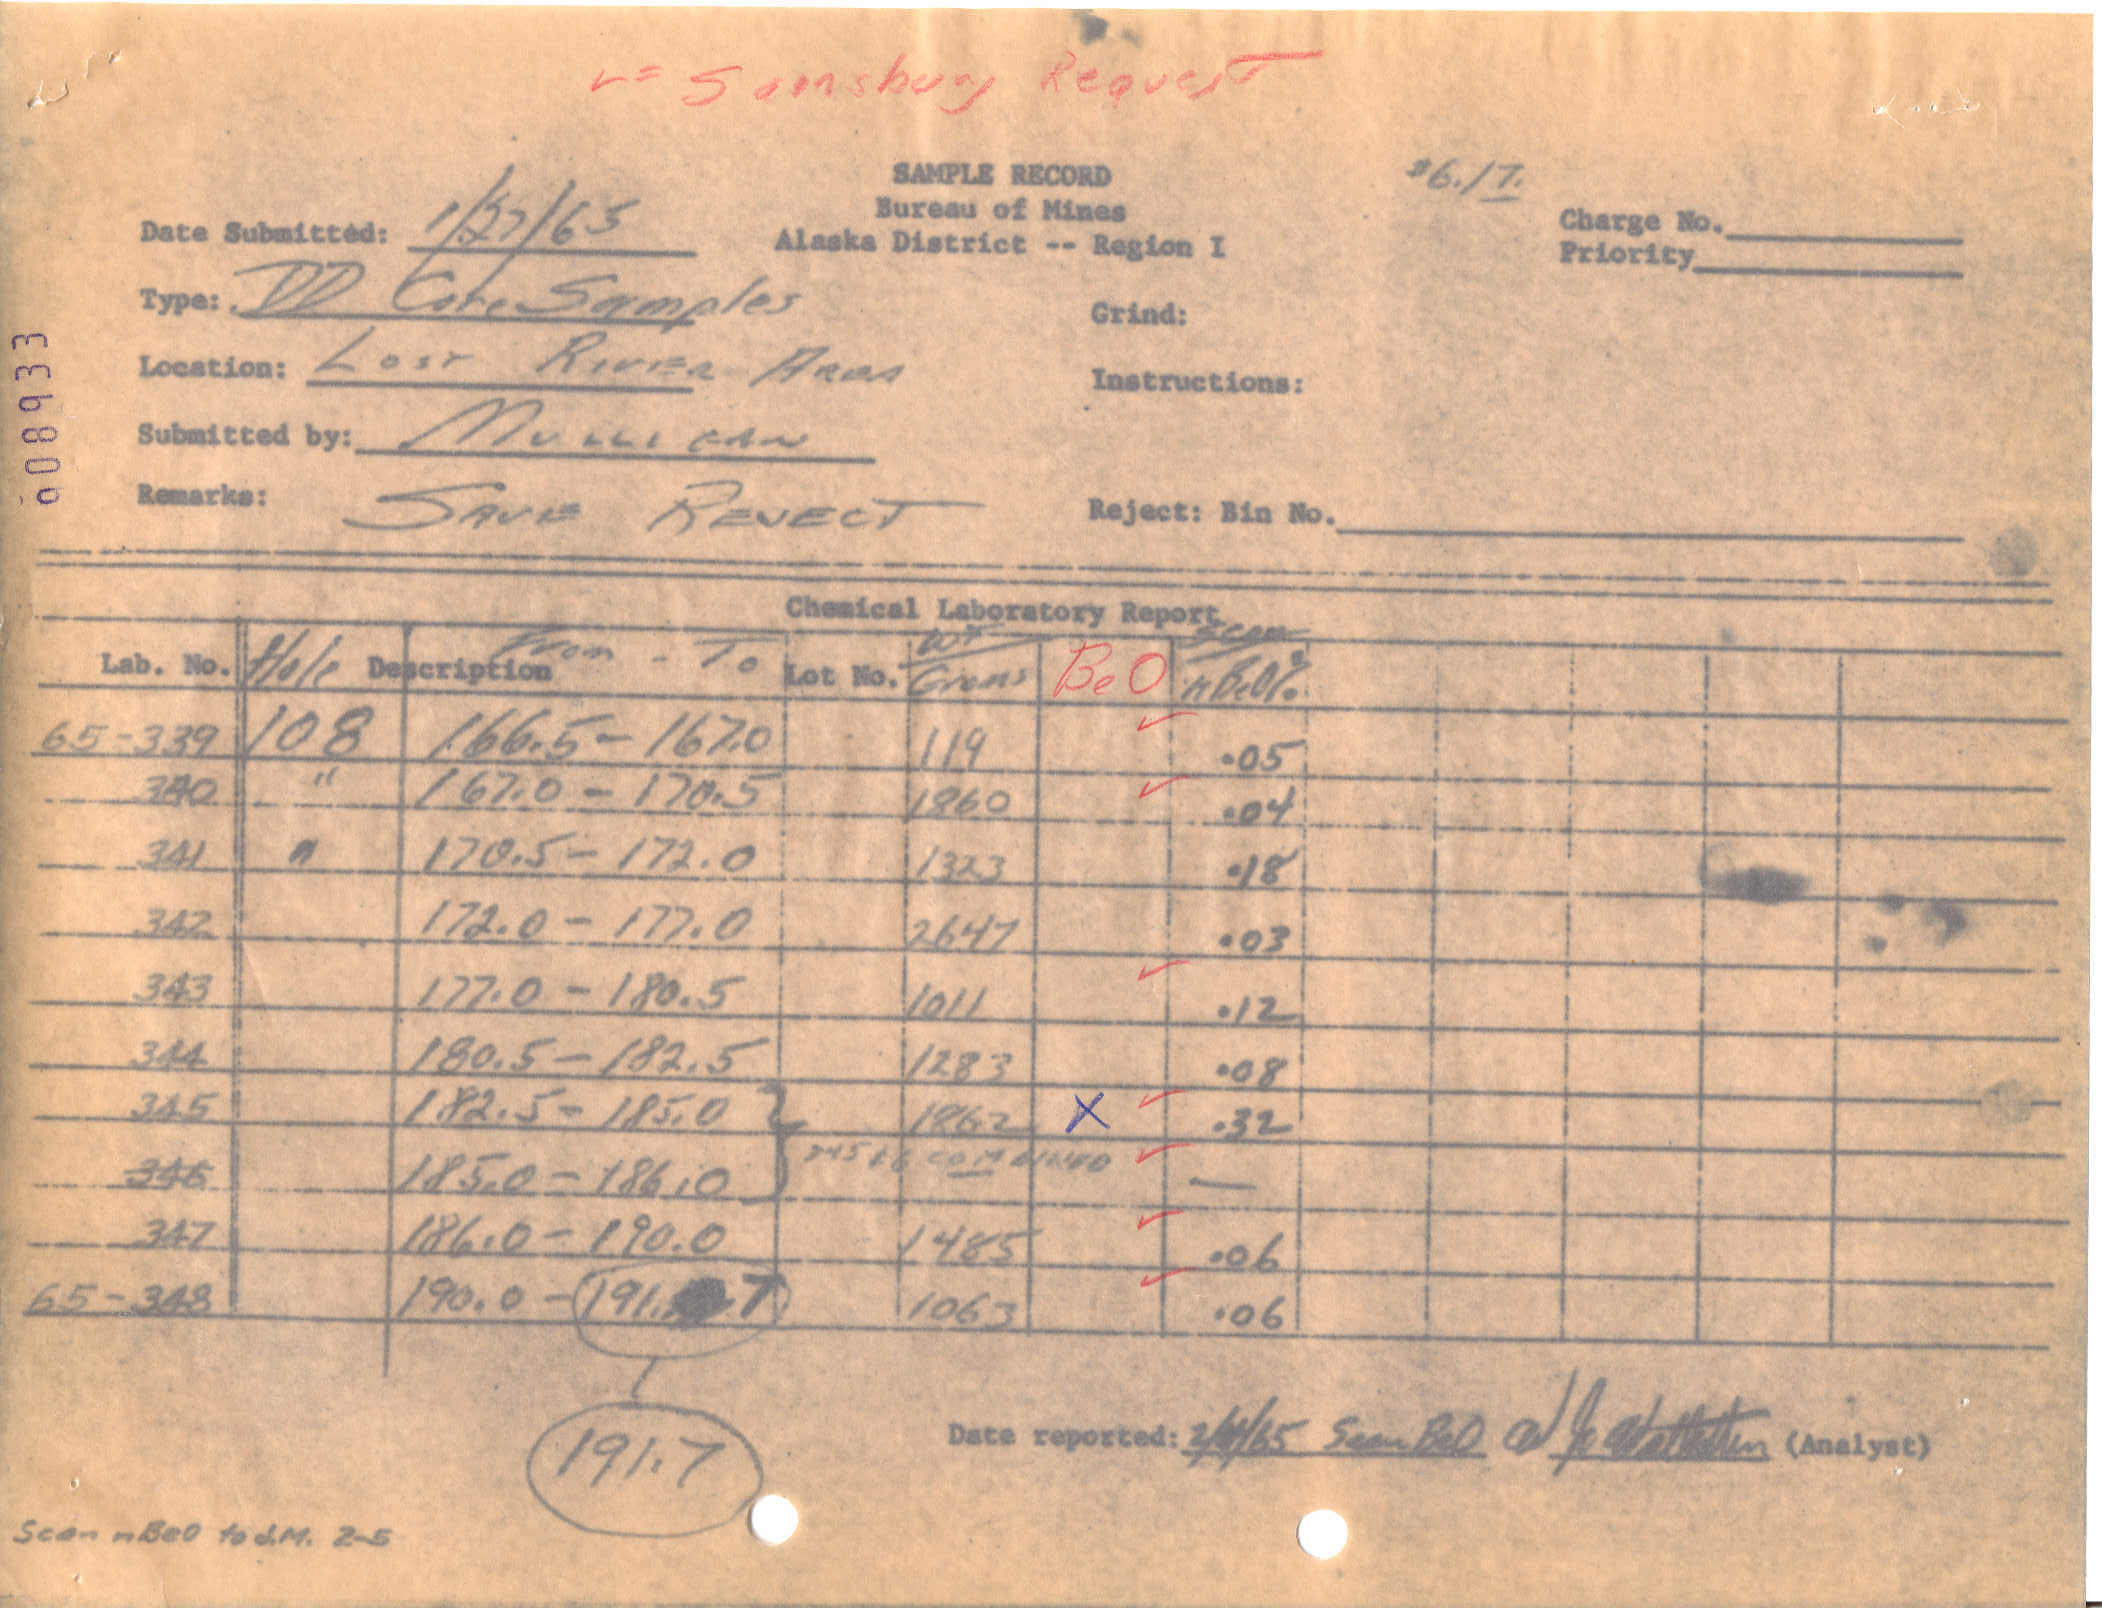 ✓ = Sainsbury Request
SAMPLE RECORD
Bureau of Mines
Alaska District -- Region I
#6.17.
Charge No.
Priority
Date Submitted: 1/27/65
Type: DD Core Samples
Grind:
Location: Lost River Area
Instructions:
Submitted by: Mulligan
Remarks: SAVE REJECT
Reject: Bin No.
008933
Chemical Laboratory Report
Lab. No. Hole Description From - To Lot No. Wt Grams BeO Scan nBeO%
65-339 108 166.5 - 167.0 119 ✓ .05
340 " 167.0 - 170.5 1860 ✓ .04
341 " 170.5 - 172.0 1323 .18
342 172.0 - 177.0 2647 .03
343 177.0 - 180.5 1011 ✓ .12
344 180.5 - 182.5 1283 .08
345 182.5 - 185.0 1862 X ✓ .32
346 185.0 - 186.0 345 & 6 COMBINED ✓ —
347 186.0 - 190.0 1485 ✓ .06
65-348 190.0 - 191.7 1063 ✓ .06
191.7
Date reported: 2/4/65 Scan BeO (Analyst)
Scan nBeO to J.M. 2-5